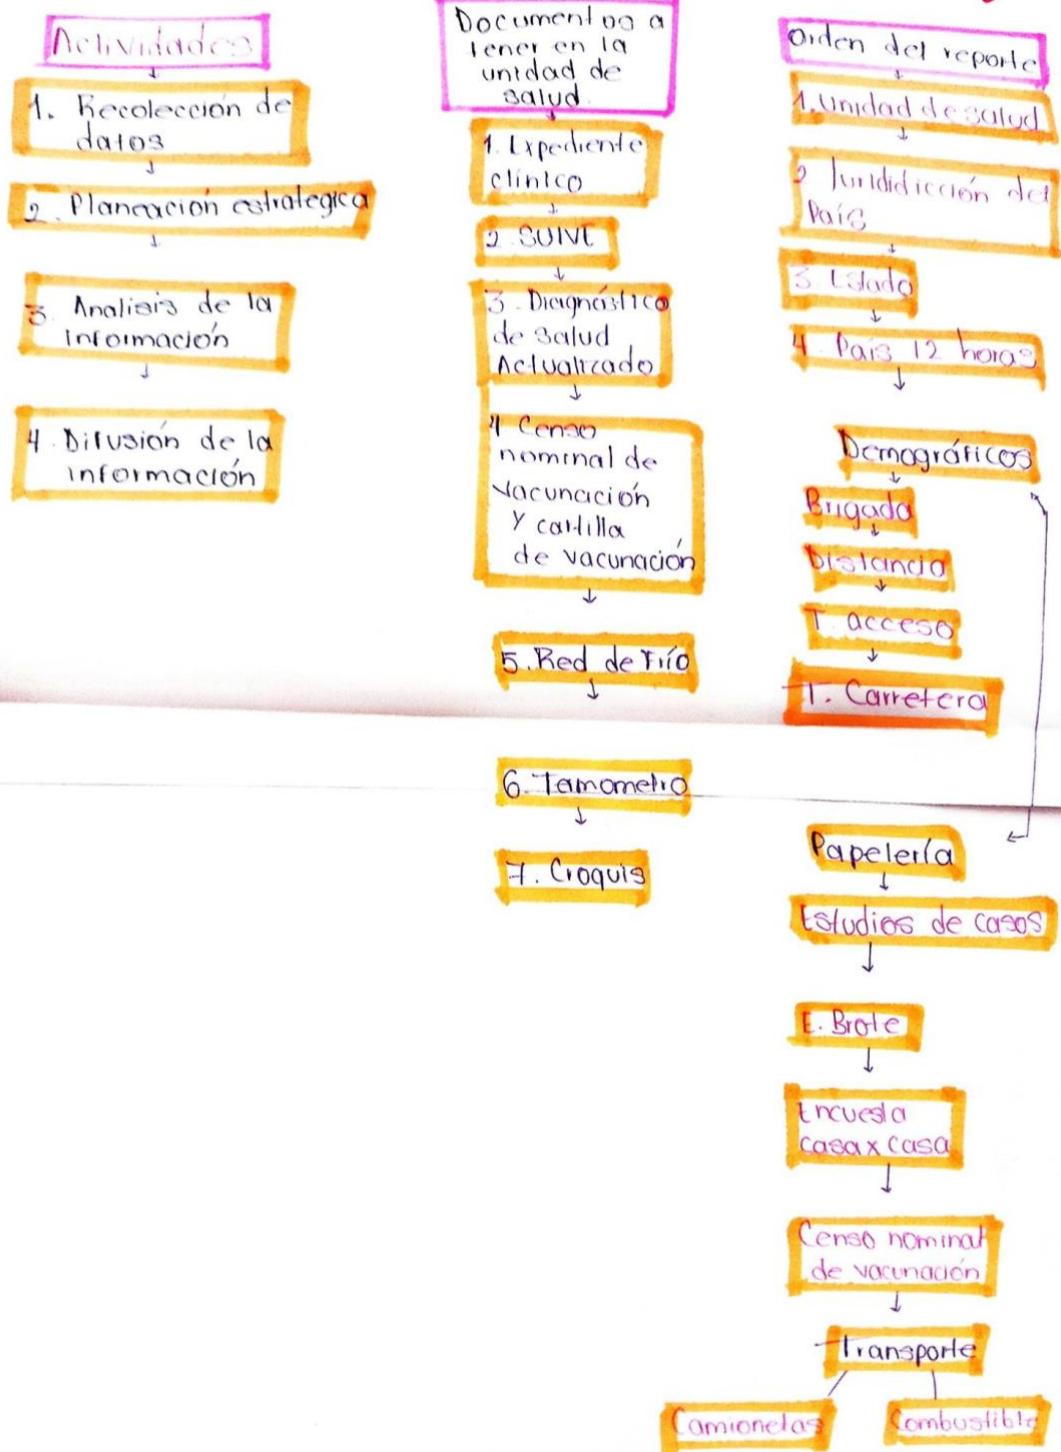 Actividades
1. Recolección de
datos
2. Planeación estrategica
3. Analisis de la
información
4. Difusión de la
información
Documentos a
tener en la
unidad de
salud.
1. Expediente
clínico
2. SUIVE
3. Diagnóstico
de salud
Actualizado
4 Censo
nominal de
vacunación
y cartilla
de vacunación
5. Red de Frío
6. Tamometro
7. Croquis
Orden del reporte
1. Unidad de salud
2 Jurididicción del
País
3. Estado
4. País 12 horas
Demográficos
Brigada
Distancia
T. acceso
T. Carretera
Papelería
Estudios de casos
E. Brote
Encuesta
casa x casa
Censo nominal
de vacunación
Transporte
Camionetas
Combustible